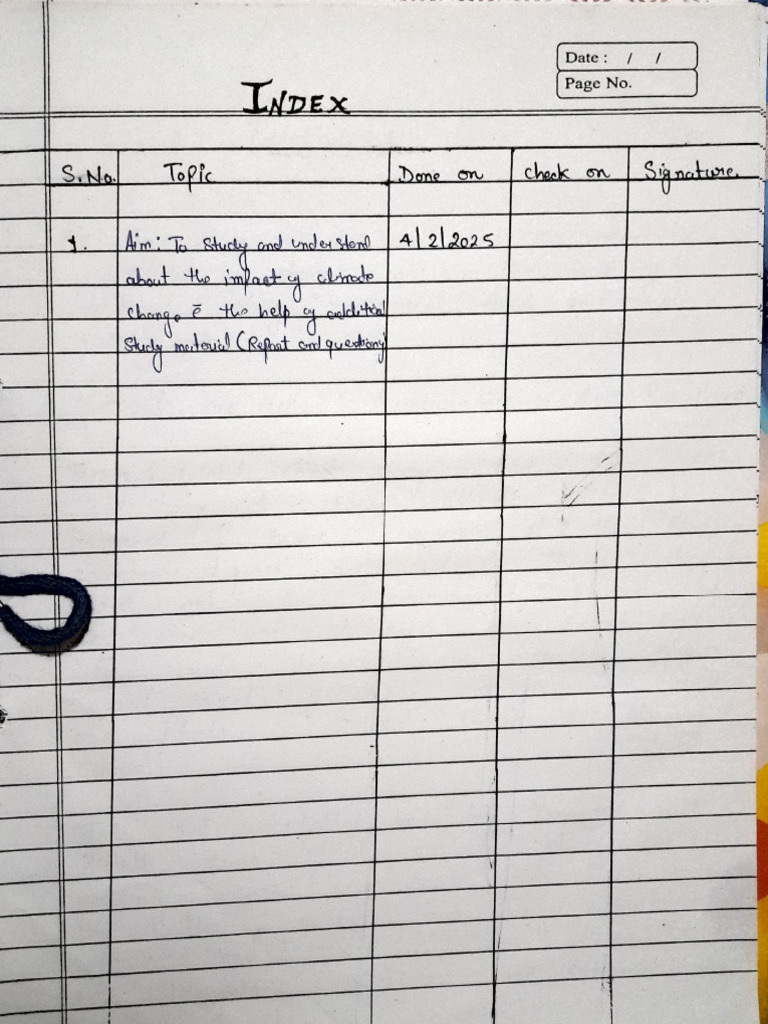 Date : / /
Page No.
INDEX
S.No. Topic Done on Check on Signature
1. Aim: To study and understand 4/2/2025
about the impact of climate
change c̄ the help of additional
study material (Report and